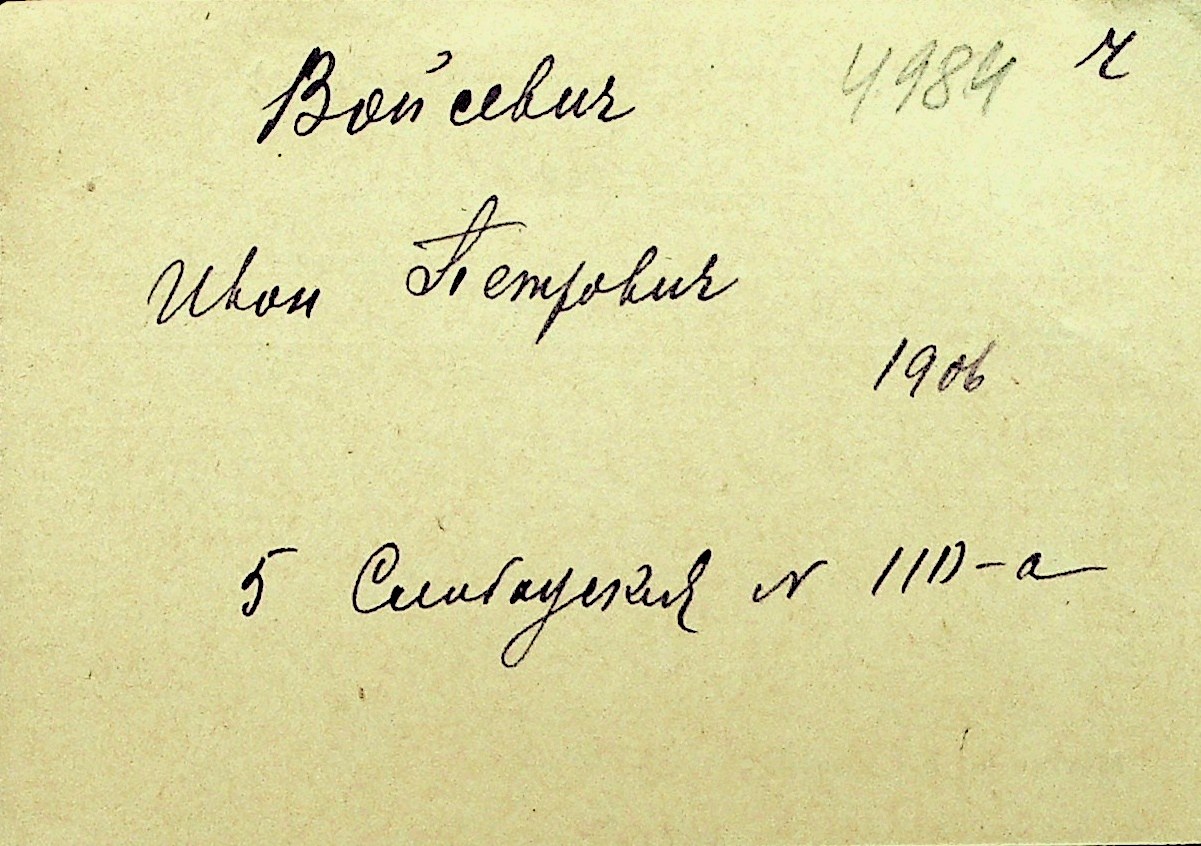 Войсевич 4984 ч
Иван Петрович
1906
5 Слободская № 110-а